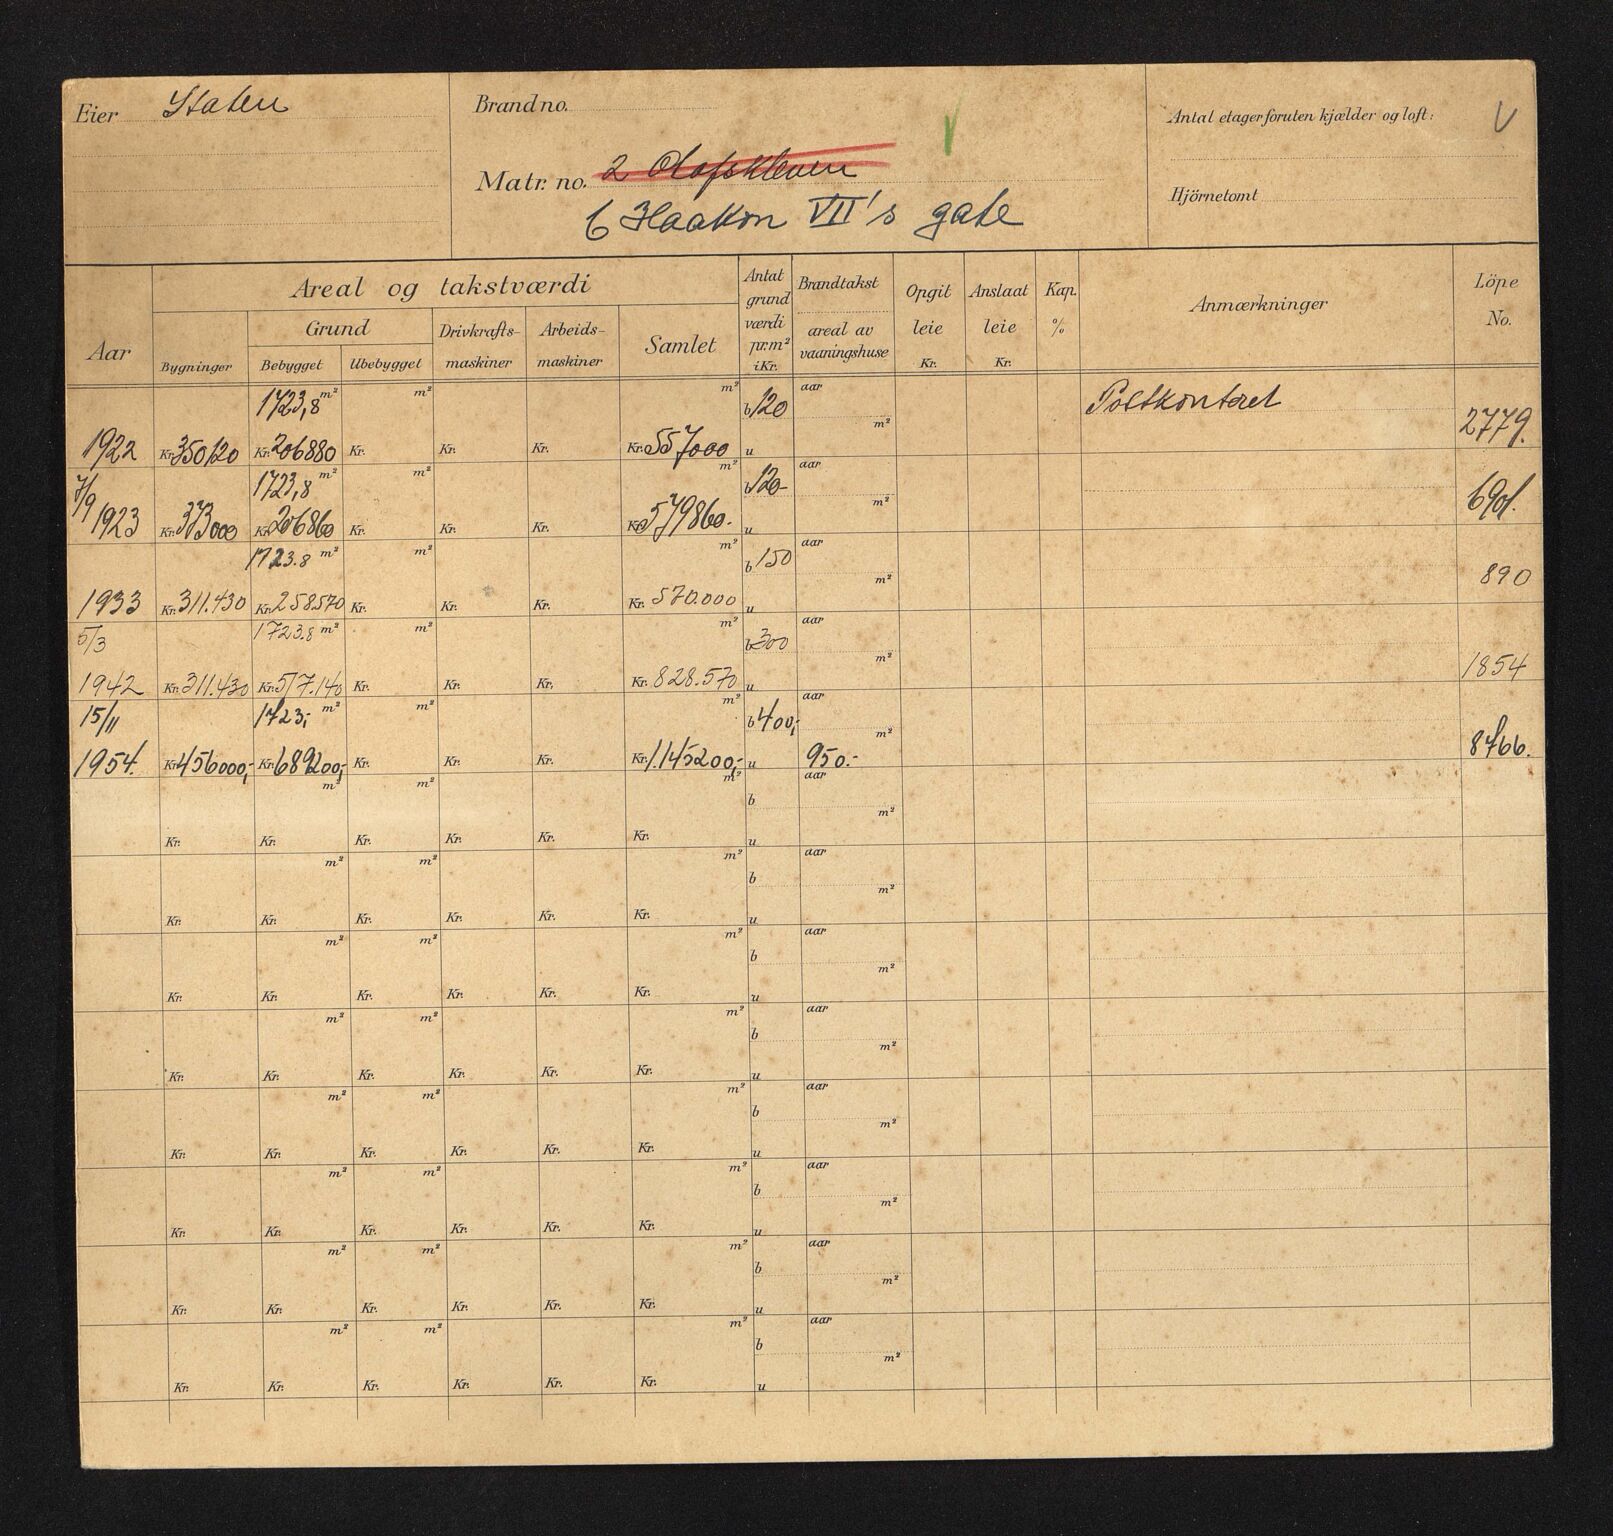 Eier Staten
Brand no.
Antal etager foruten kjælder og loft: V
Matr. no. 2 Olafskleven
6 Haakon VII's gate
Hjörnetomt
Aar
Areal og takstværdi
Grund
Bygninger
Bebygget
Ubebygget
Drivkrafts-maskiner
Arbeids-maskiner
Samlet
Antat grund værdi pr. m² i Kr.
Brandtakst
areal av vaaningshuse
Opgit leie Kr.
Anslaat leie Kr.
Kap. %
Anmærkninger
Löpe No.
1723,8 m² m² m² b 120 aar Postkontoret
1922 Kr. 350120 Kr. 206880 Kr. Kr. Kr. Kr. 557000 u m² 2779.
7/9 1723,8 m² m² m² b 120- aar
1923 Kr. 373000 Kr. 206860 Kr. Kr. Kr. Kr. 579860.- u m² 6901.
1723.8 m² m² m² b 150 aar
1933 Kr. 311.430 Kr. 258570 Kr. Kr. Kr. Kr. 570.000 u m² 890
5/3 1723.8 m² m² m² b 300 aar
1942 Kr. 311.430 Kr. 517.140 Kr. Kr. Kr. Kr. 828.570 u m² 1854
15/11 1723,- m² m² m² b 400,- aar
1954. Kr. 456000,- Kr. 689200,- Kr. Kr. Kr. Kr. 1.145200,- u 950.- m² 8766.
m² m² m² b aar
Kr. Kr. Kr. Kr. Kr. Kr. u m²
m² m² m² b aar
Kr. Kr. Kr. Kr. Kr. Kr. u m²
m² m² m² b aar
Kr. Kr. Kr. Kr. Kr. Kr. u m²
m² m² m² b aar
Kr. Kr. Kr. Kr. Kr. Kr. u m²
m² m² m² b aar
Kr. Kr. Kr. Kr. Kr. Kr. u m²
m² m² m² b aar
Kr. Kr. Kr. Kr. Kr. Kr. u m²
m² m² m² b aar
Kr. Kr. Kr. Kr. Kr. Kr. u m²
m² m² m² b aar
Kr. Kr. Kr. Kr. Kr. Kr. u m²